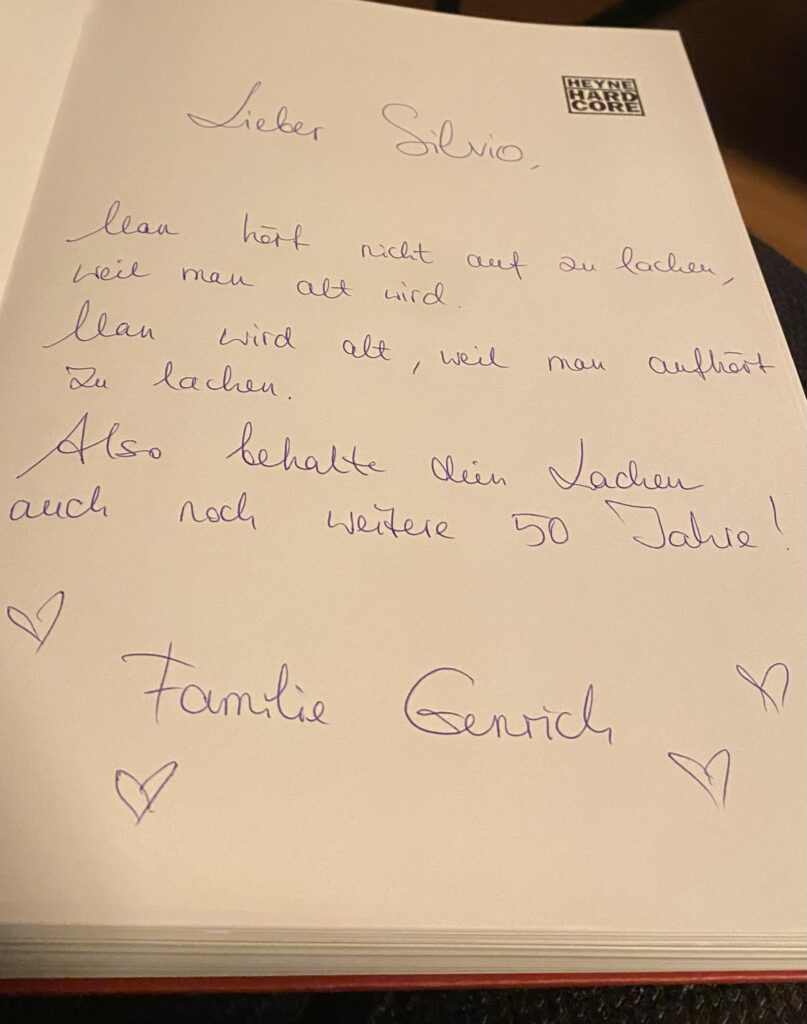 HEYNE
HARD
CORE
Lieber Silvio,
Man hört nicht auf zu lachen,
weil man alt wird.
Man wird alt, weil man aufhört
zu lachen.
Also behalte dein Lachen
auch noch weitere 50 Jahre!
Familie Genrich